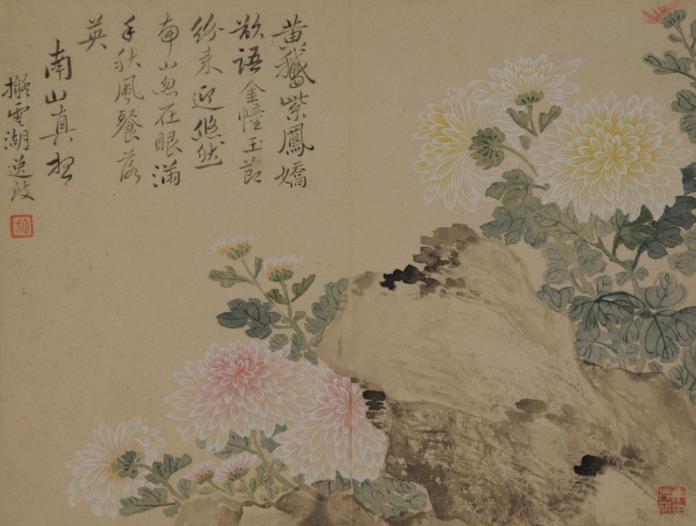 黄鵞紫鳳嬌
欲語金幢玉節
紛來迎悠然
南山忽在眼滿
手秋風餐落
英
南山真想
擬雲湖逸致